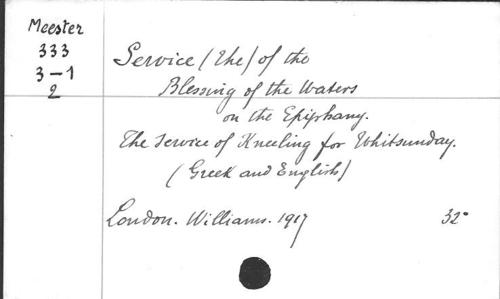 Meester
333
3-1
2
Service (the) of the
Blessing of the Waters
on the Epiphany.
The Service of Kneeling for Whitsunday.
(Greek and English)
London. Williams. 1917
32°